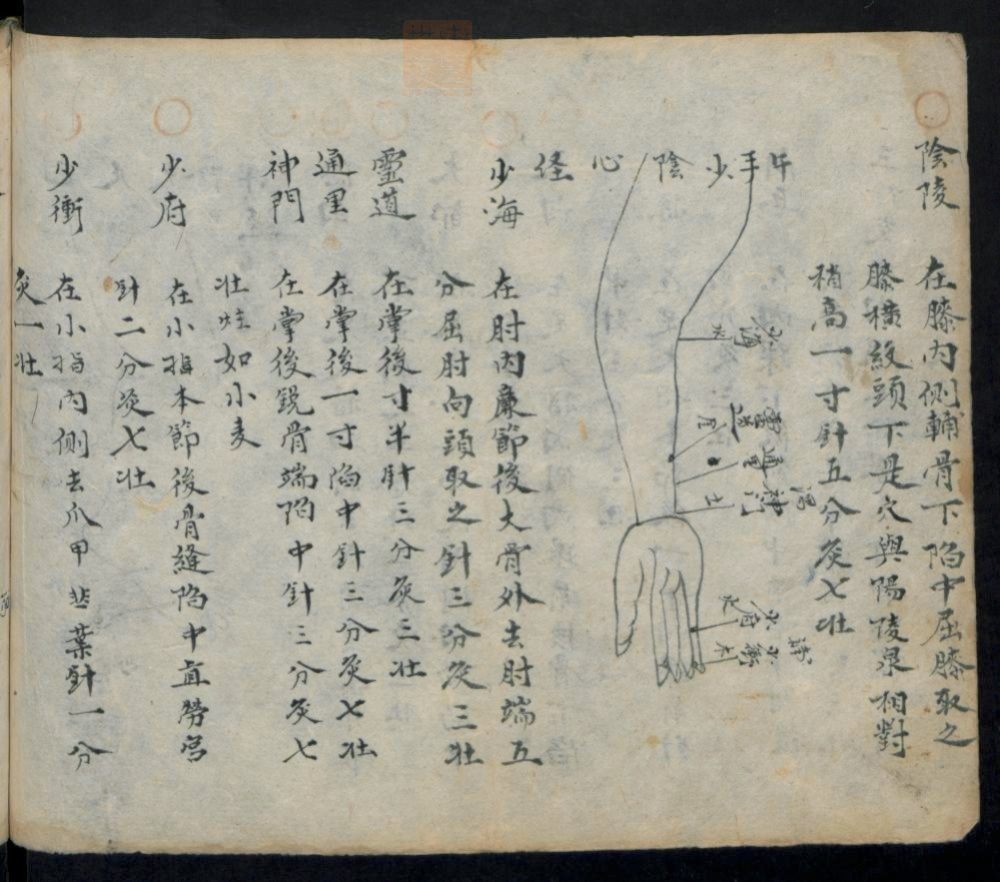 陰陵 在膝內側輔骨下陷中屈膝取之
膝橫紋頭下是穴與陽陵泉相對
稍高一寸針五分灸七壯
午手少陰心経
少海
水
灵道
通里
神門
土
少府
火
少衝
木
少海 在肘內廉節後大骨外去肘端五
分屈肘向頭取之針三分灸三壯
靈道 在掌後寸半針三分灸三壯
通里 在掌後一寸陷中針三分灸七壯
神門 在掌後銳骨端陷中針三分灸七
壯炷如小麦
少府 在小指本節後骨縫陷中直勞宮
針二分灸七壯
少衝 在小指內側去爪甲韭葉針一分
灸一壯